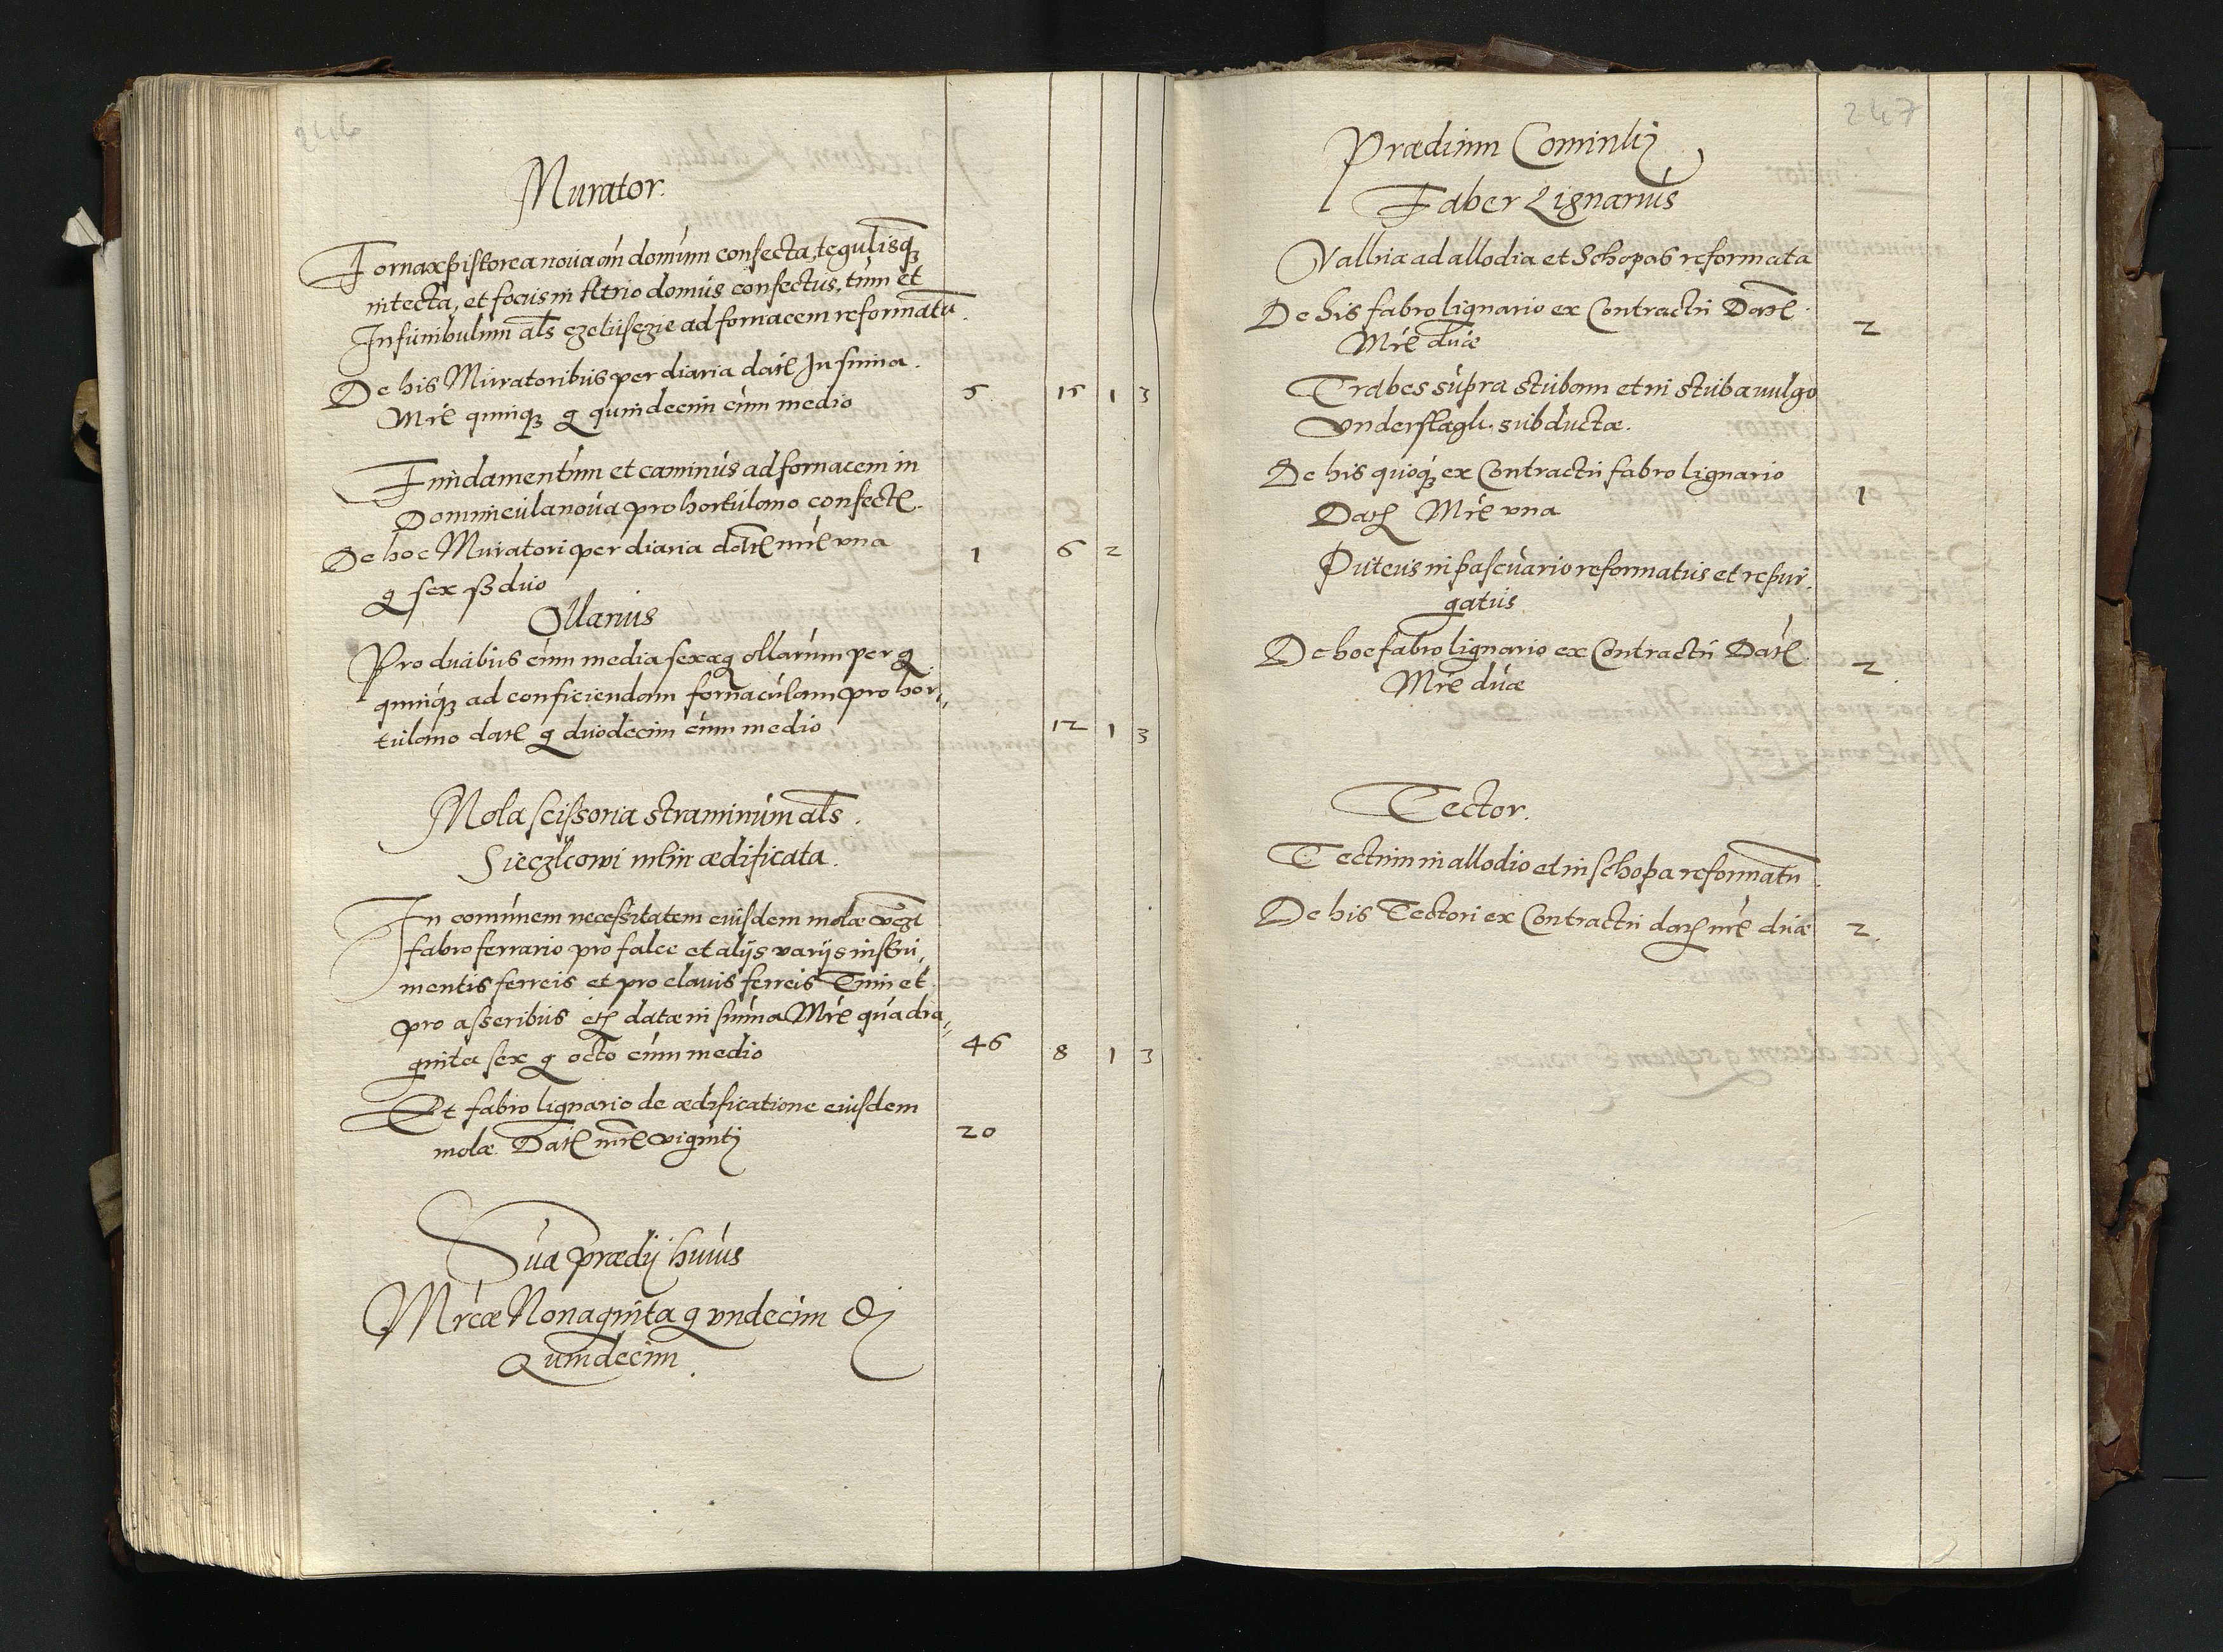 246
Murator.
Fornax pistorea noua an̄ domum confecta, tegulisq3
intecta, et focus in Atrio domus confectus, tum et
Infumibulum als czeluſczie ad fornacem reformatū.
De his Muratoribus per diaria datæ In summa.
Mrcæ quinq3 g quindecim cum medio 5 15 1 3
Fundamentum et caminus ad fornacem in
Domuncula noua pro hortulano confectæ.
De hoc Muratori per diaria datæ mrcæ vna
g sex ß duo 1 6 2
Ollarius
Pro duabus cum media sexag ollarum per g
quinq3 ad conficiendam fornaculam pro hor,,
tulano datæ g duodecim cum medio 12 1 3
Mola scissoria straminum als.
Sieczkowi mlin ædificata.
In comunem necessitatem eiusdem molæ
fabro ferrario pro falce et alijs varijs instru,
mentis ferreis et pro clauis ferreis Tum et
pro asseribus etc datæ in summa Mrcæ quadra,,
ginta sex g octo cum medio 46 8 1 3
Et fabro lignario de ædificatione eiusdem
molæ Datæ mrcæ viginti 20
Sūa prædij huius
Mrcæ Nonaginta g vndecim &
Quindecim.
247
Prædium Cominbij
Faber Lignarius
Valuæ ad allodia et Schopas reformata
De his fabro lignario ex Contractu Datæ.
Mrcæ duæ 2
Trabes supra stubam et in stuba vulgo
vnderstagli subductæ.
De his quoq3 ex Contractu fabro lignario
Datæ Mrcæ vna 1
Puteus in pascuario reformatus et repur,
gatus
De hoc fabro lignario ex Contractu Datæ.
Mrcæ duæ 2
Tector.
Tectum in allodio et in schopa reformatū.
De his Tectori ex Contractu datæ mrcæ duæ 2